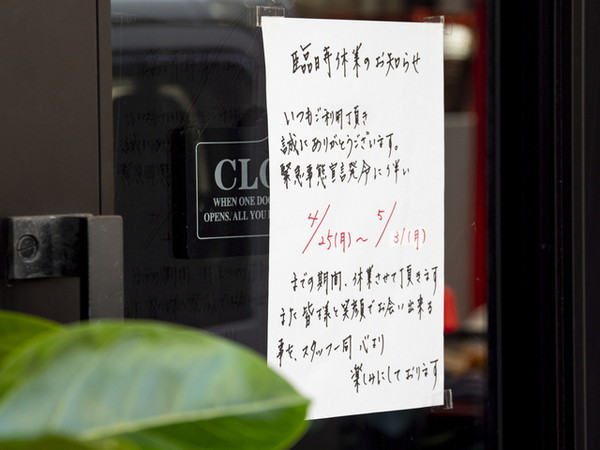 臨時休業のお知らせ
いつもご利用頂き
誠にありがとうございます。
緊急事態宣言発令に伴い
4/25(月)～5/31(月)
までの期間、休業させて頂きます
また皆様と笑顔でお会い出来る
事を、スタッフ一同 心より
楽しみにしております
WHEN ONE
OPENS. ALL YOU